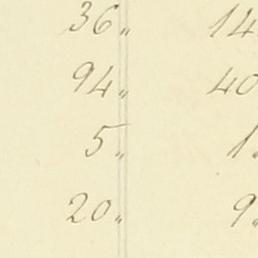 36 " 14
94 " 40
5 " 1 "
20 " 9 "